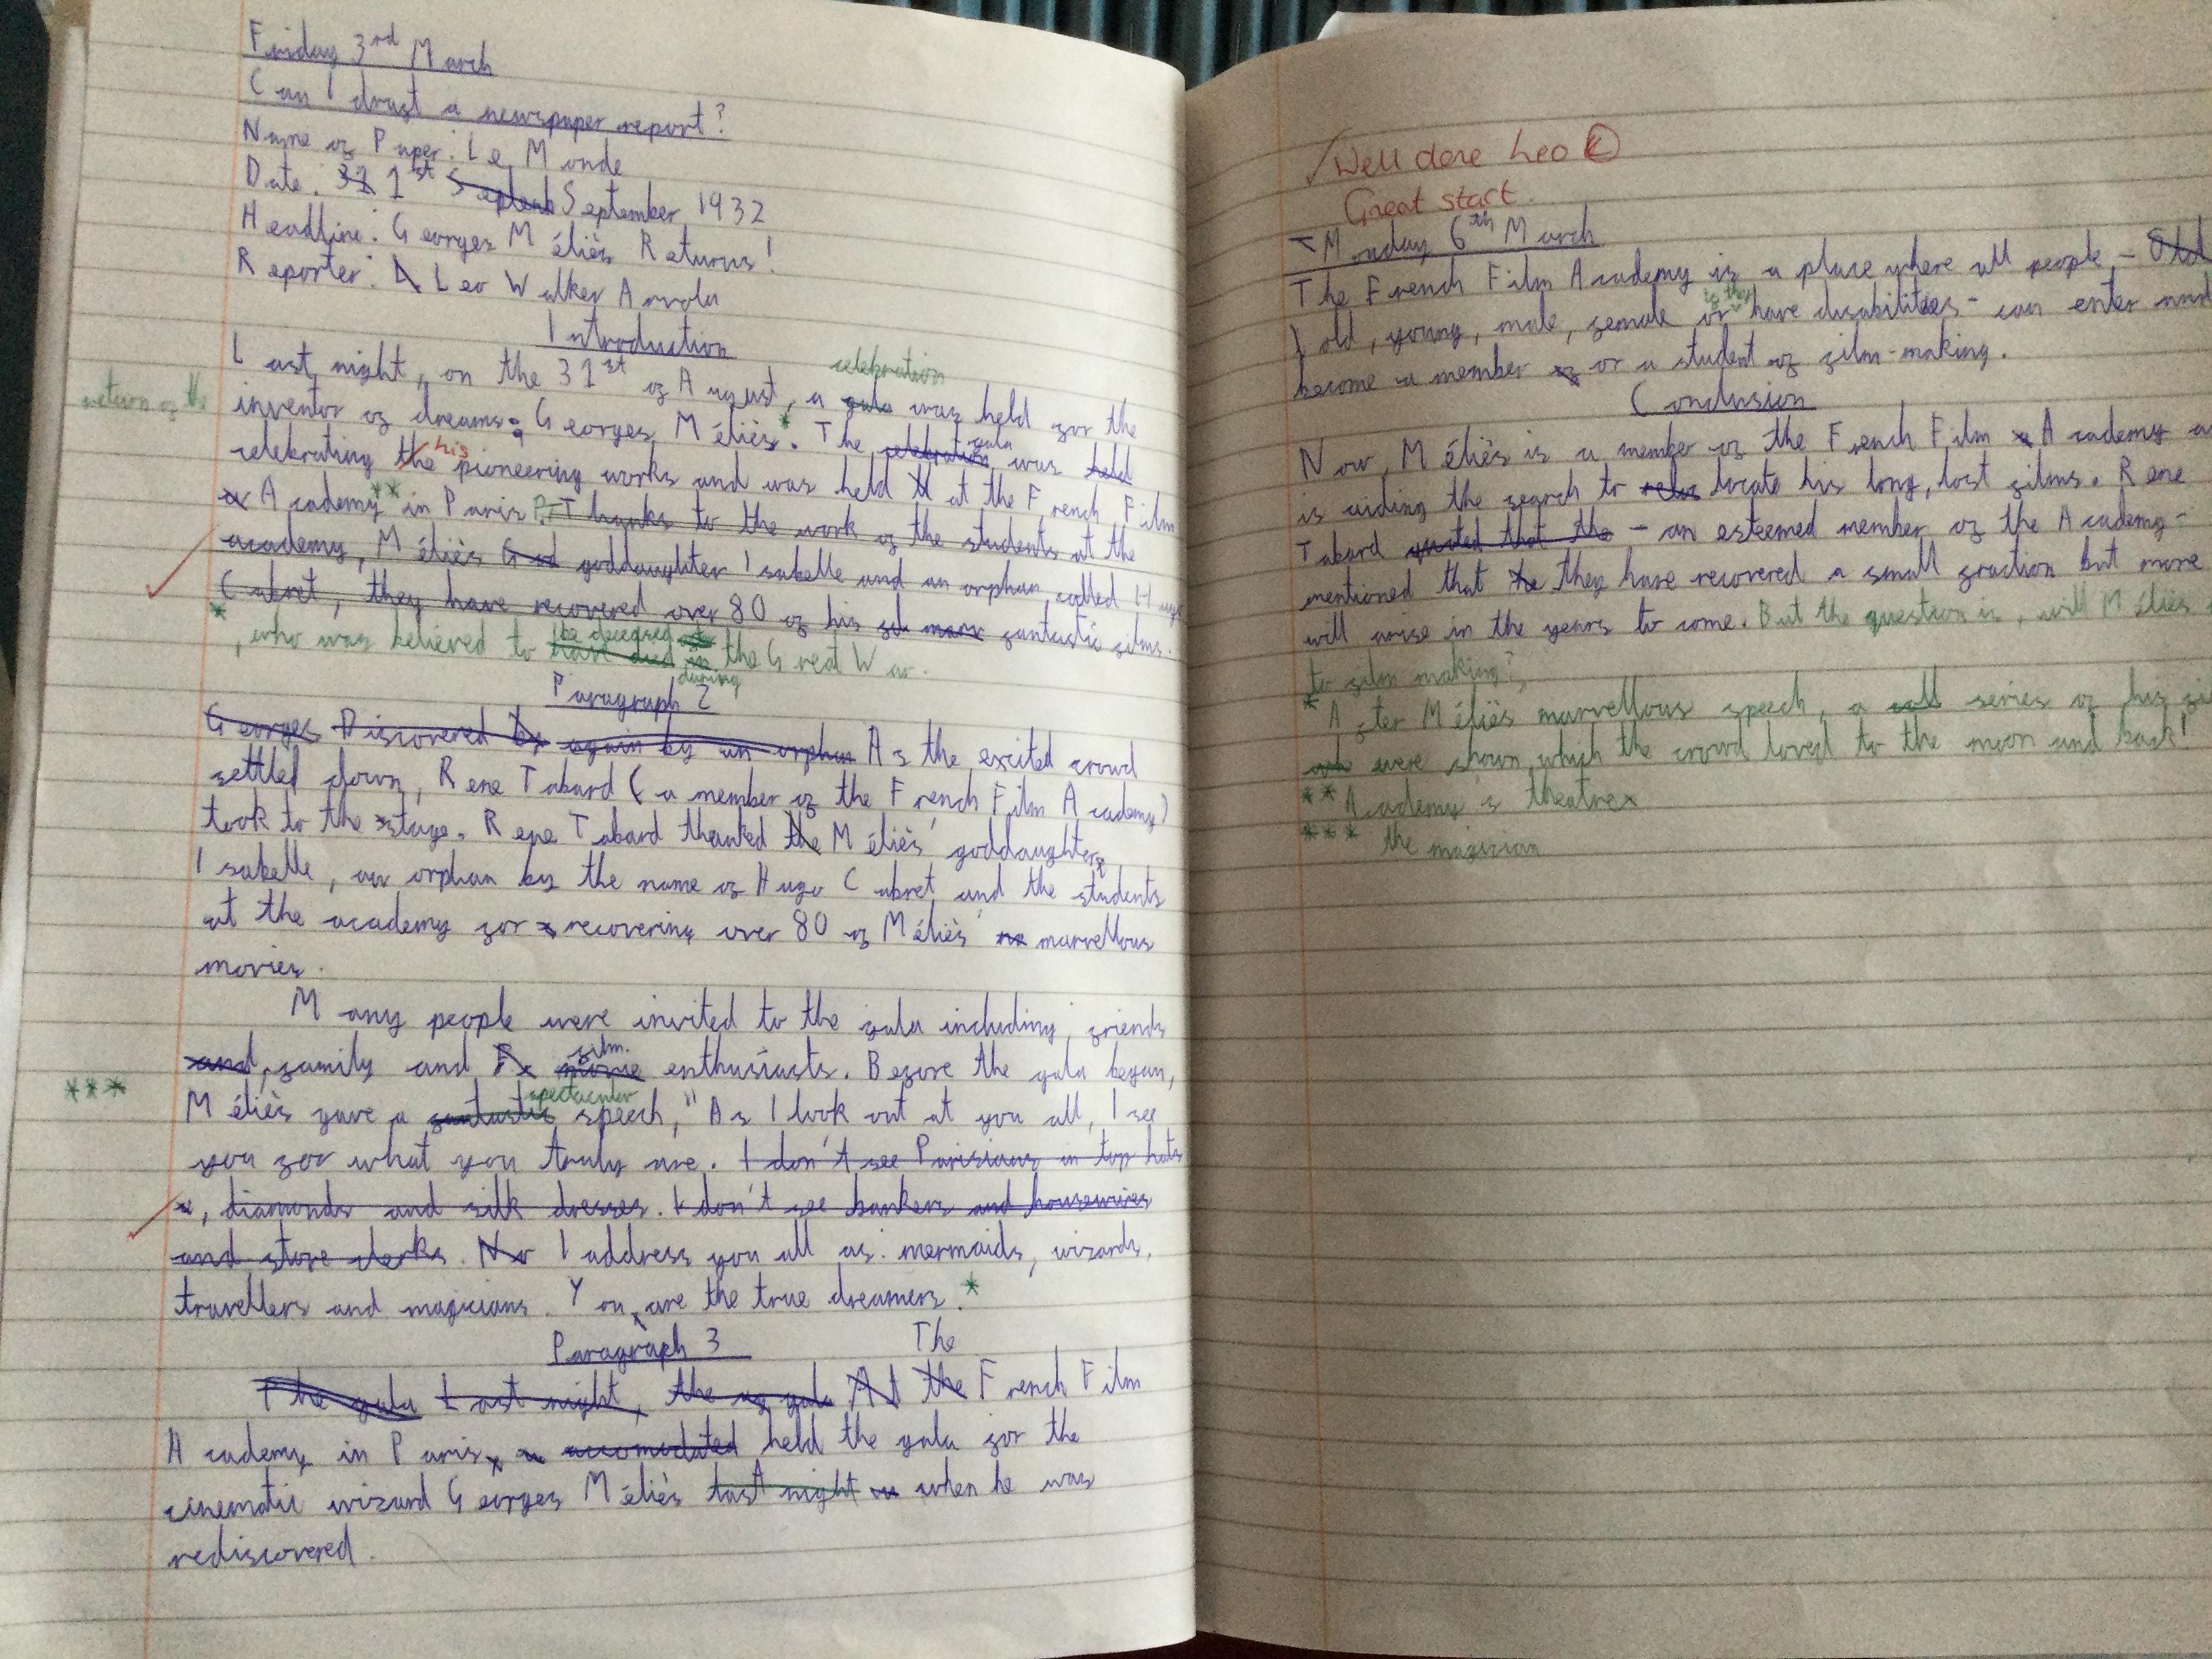 Friday 3rd March
Can I draft a newspaper report?
Name of Paper: Le Monde
Date: 31 1st Septemb September 1932
Headline: Georges Méliès Returns!
Reporter: Leo Walker Arvola
Introduction
celebration
Last night, on the 31st of August, a gala was held for the
return of the
inventor of dreams: Georges Méliès*. The celebration gala was held
celebrating the his pioneering works and was held at the French Film
Academy** in Paris. Thanks to the work of the students at the
academy, Méliès God goddaughter Isabelle and an orphan called Hugo
Cabret, they have recovered over 80 of his fantastic films.
* , who was believed to have died in be deceased during the Great War.
Paragraph 2
Georges Discovered again by an orphan As the excited crowd
settled down, Rene Tabard (a member of the French Film Academy)
took to the stage. Rene Tabard thanked the Méliès' goddaughter
Isabelle, an orphan by the name of Hugo Cabret, and the students
at the academy for recovering over 80 of Méliès' marvellous
movies.
Many people were invited to the gala including, friends
and, family and movie film enthusiasts. Before the gala began,
*** Méliès gave a fantastic spectacular speech, "As I look out at you all, I see
you for what you truly are. I don't see Parisians in top hats
, diamonds and silk dresses. I don't see bankers and housewives
and store clerks. No I address you all as: mermaids, wizards,
travellers and magicians. You are the true dreamers.*
Paragraph 3
The gala Last night, the gala At the The French Film
Academy in Paris, accomodated held the gala for the
cinematic wizard Georges Méliès last night when he was
rediscovered.
Well done Leo
Great start.
Monday 6th March
The French Film Academy is a place where all people - Old
old, young, male, female or if they have disabilities - can enter and
become a member of or a student of film-making.
Conclusion
Now, Méliès is a member of the French Film Academy
is aiding the search to locate his long, lost films. Rene
Tabard quoted that the - an esteemed member of the Academy -
mentioned that he they have recovered a small fraction but more
will arise in the years to come. But the question is, will Méliès
to film making?
* After Méliès marvellous speech, a series of his
were shown which the crowd loved to the moon and back!
** Academy's theatre
*** the magician